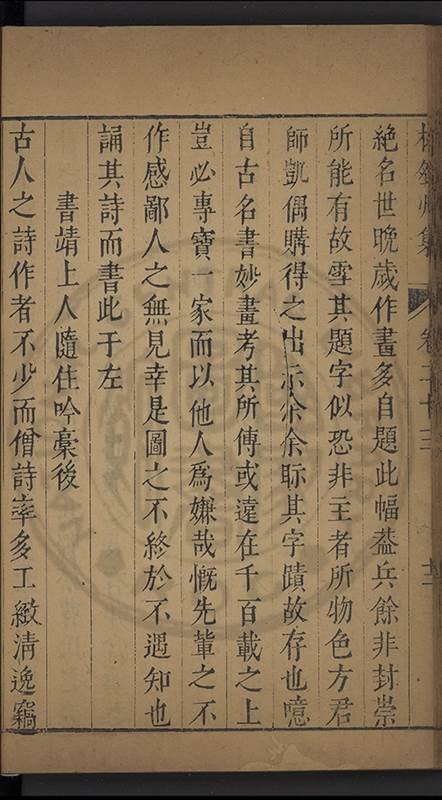 卷二十三
絶名世晩歲作畫多自題此幅葢兵餘非封崇
所能有故雪其題字似恐非主者所物色方君
師凱偶購得之出示余余眎其字蹟故存也噫
自古名書妙畫考其所傳或遠在千百載之上
豈必專寶一家而以他人爲嫌哉慨先軰之不
作感鄙人之無見幸是圖之不終於不遇知也
誦其詩而書此于左
書靖上人隨住吟藁後
古人之詩作者不少而僧詩率多工緻清逸竊